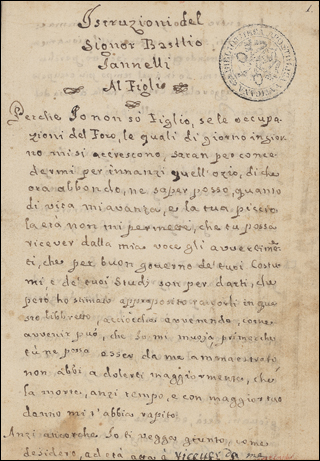 1
Istruzioni del
Signor Basilio
Iannelli
Al Figlio
Perche Io non sò Figlio, se le occupa-
zioni del Foro, le quali di giorno in gior-
no mi si accrescono, saran per conce-
dermi per innanzi quell'ozio, di che
ora abbondo, ne saper posso, quanto
di vita m'avanza, e la tua piccio-
la età non mi permette, che tu possa
ricever dalla mia voce gli avvertimẽ-
ti, che per buon governo de' tuoi Costu-
mi e de' tuoi Studj son per darti, che
però hò stimato approposito raccorli in que-
sto libbretto, acciocchè avvenendo, come
avvenir può, che Io mi muoja primacche
tù ne possa esser da me ammaestrato
non abbi a dolerti maggiormente, che
la morte, anzi tempo, e con maggior tuo
danno mi t'abbia rapito.
Anzi ancorche Io ti vegga giunto, come
desidero, ad età atta à ricever da me